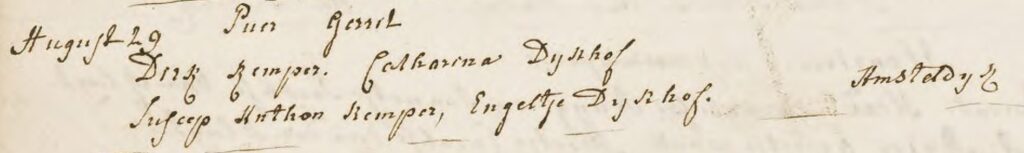 August 29 Puer Gerrit
Dirk Kemper. Catharina Dykhof
Suscep Anthon Kemper, Engeltje Dykhof. Amsteldyk